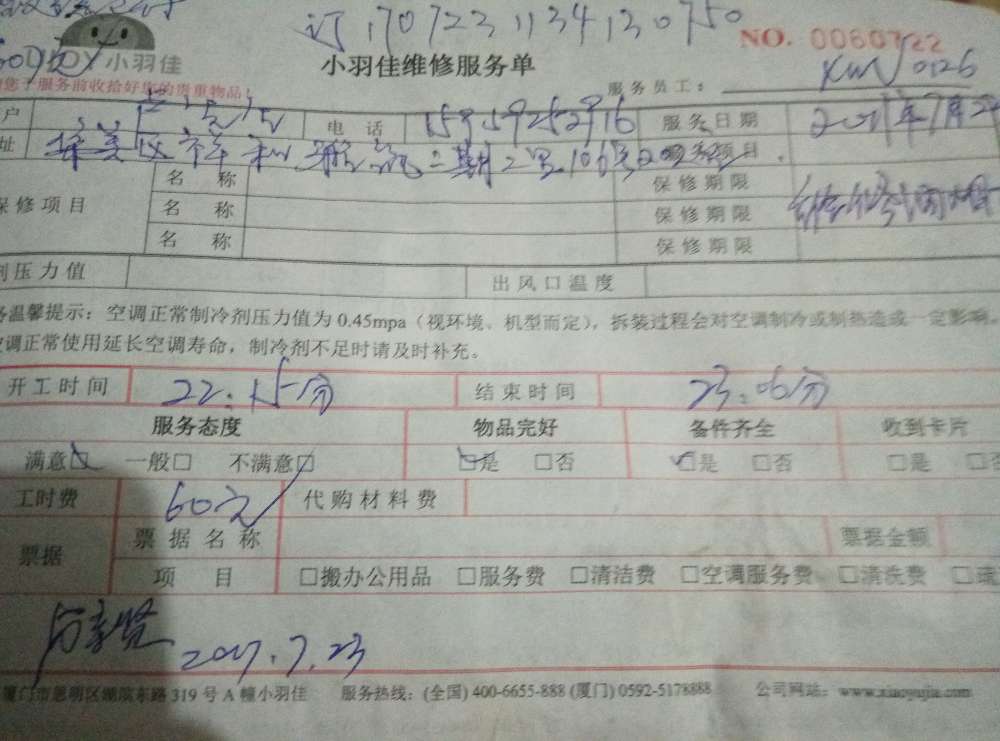 订170723113413 0750
小羽佳
NO. 0060722
小羽佳维修服务单
您于服务前收拾好您的贵重物品！
服务员工：XM0126
户 电话 15959252916 服务日期
址 二期 106 服务项目
名称 保修期限
保修项目 名称 保修期限
名称 保修期限
剂压力值 出风口温度
温馨提示：空调正常制冷剂压力值为0.45mpa（视环境、机型而定），拆装过程会对空调制冷或制热造成一定影响。
调正常使用延长空调寿命，制冷剂不足时请及时补充。
开工时间 22:15分 结束时间 23:06分
服务态度 物品完好 备件齐全 收到卡片
满意□ 一般□ 不满意□ □是 □否 □是 □否 □是 □否
工时费 60元 代购材料费
票据 票据名称 票据金额
项目 □搬办公用品 □服务费 □清洁费 □空调服务费 □清洗费
2017.7.23
厦门市思明区湖滨东路319号A幢小羽佳 服务热线：(全国) 400-6655-888 (厦门) 0592-5178888 公司网站：www.xiaoyujia.com